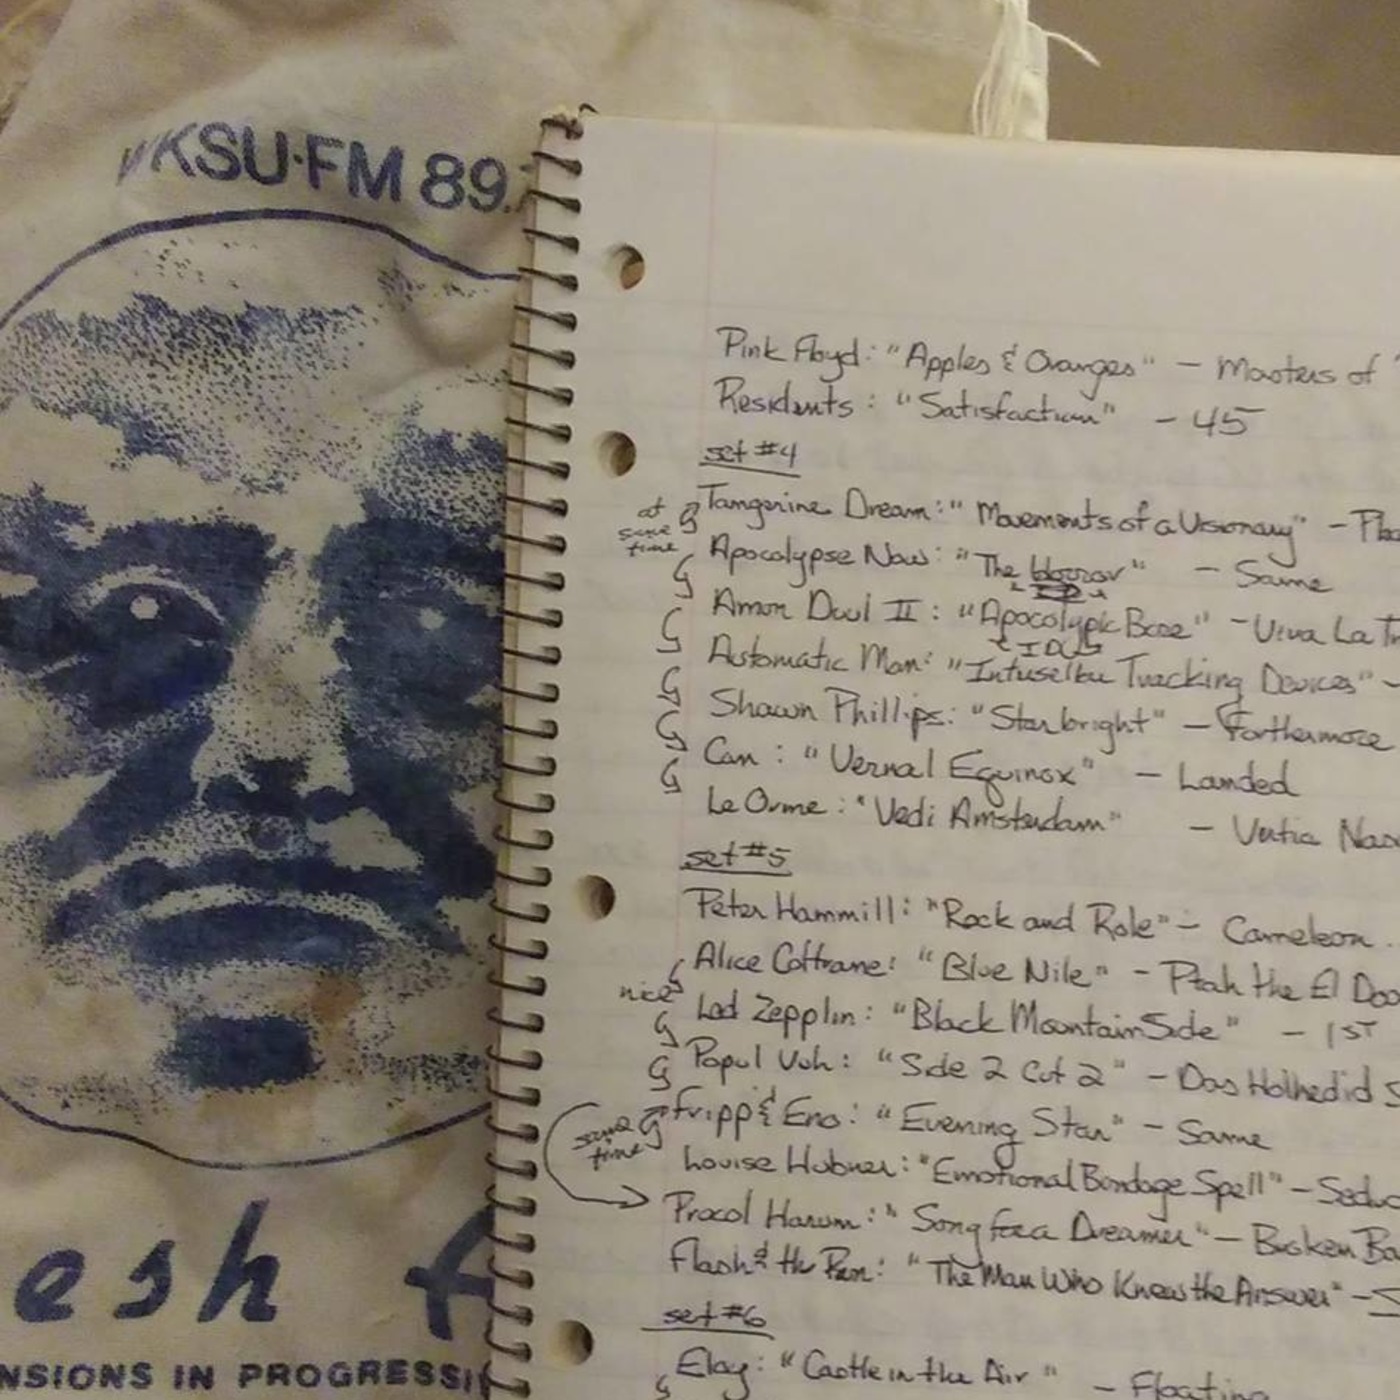 WKSU·FM 89.
Pink Floyd: "Apples & Oranges" – Masters of
Residents: "Satisfaction" – 45
set #4
at same time
Tangerine Dream: "Movements of a Visionary" –
Apocalypse Now: "The Horror" – Same
Amon Duul II: "Apocalyptic Bore" – Viva La
ID
Automatic Man: "Intersteller Tracking Devices" –
Shawn Phillips: "Starbright" – Furthermore
Can: "Vernal Equinox" – Landed
Le Orme: "Vedi Amsterdam" –
set #5
Peter Hammill: "Rock and Role" – Cameleon
Alice Coltrane: "Blue Nile" – Ptah the El
nice
Led Zepplin: "Black Mountain Side" – 1ST
Popul Vuh: "Side 2 Cut 2" – Das
same time
Fripp & Eno: "Evening Star" – Same
Louise Hubner: "Emotional Bondage Spell" –
Procol Harum: "Song for a Dreamer" – Broken
Flash & the Pan: "The Man Who Knew the Answer" –
set #6
Eloy: "Castle in the Air" – Floating
esh
NSIONS IN PROGRESSI